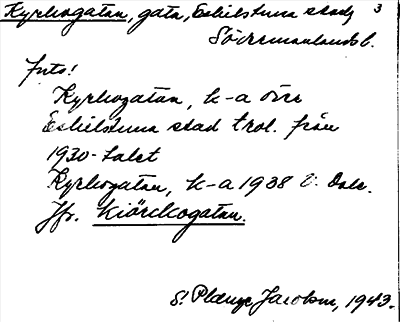 Kyrkogatan, gata, Eskilstuna stad, 3
Södermanlands l.
Kyrkogatan, k-a över
Eskilstuna stad trol. från
1930-talet
Kyrkogatan, k-a 1938
Jfr. Kiörckogatan.
Jacobson, 1943.